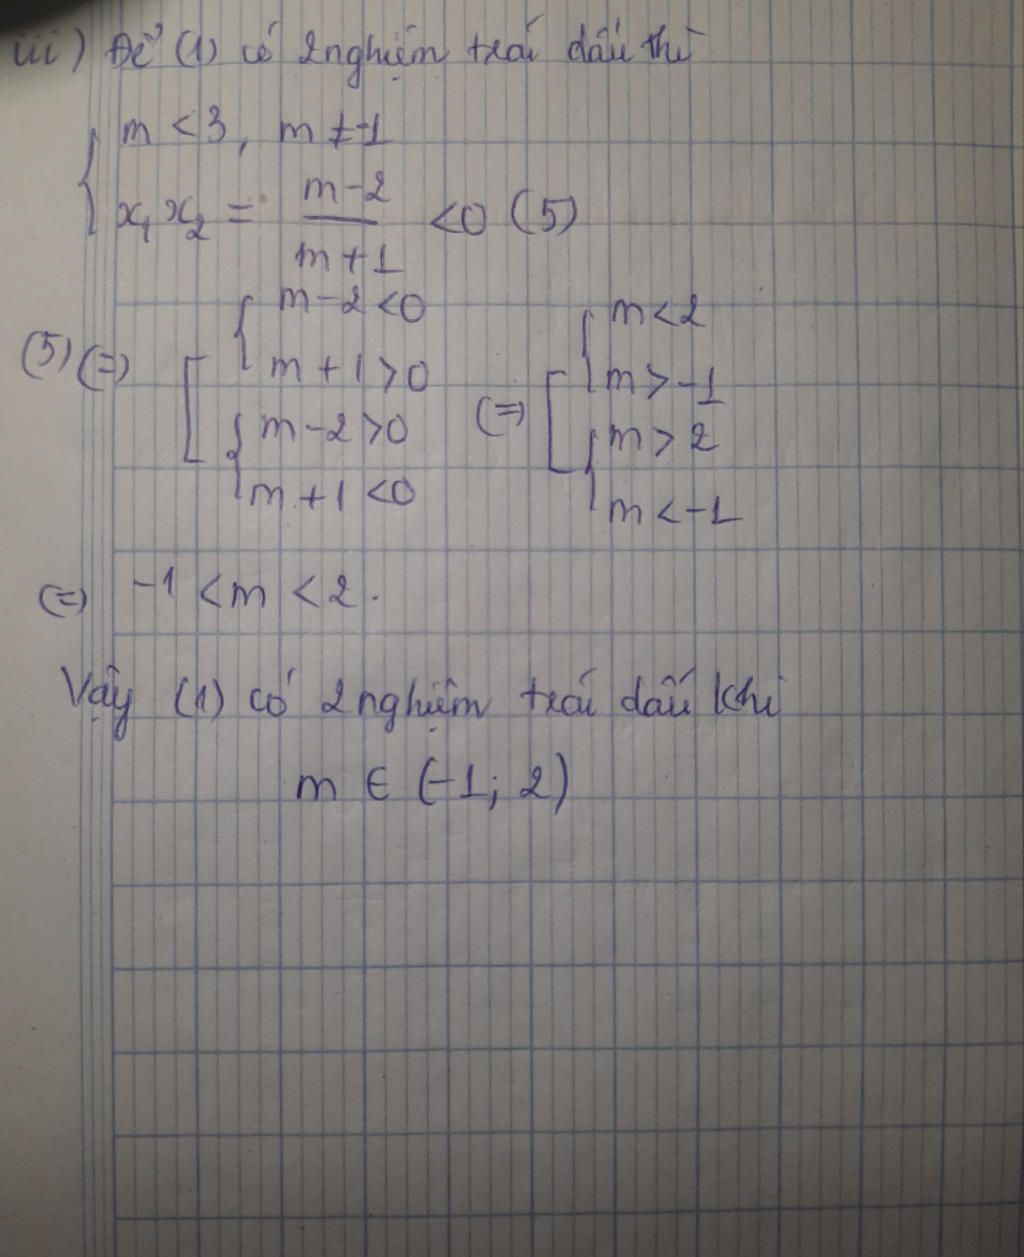 iii) Để (1) có 2 nghiệm trái dấu thì
{ m < 3, m ≠ -1
x₁ x₂ = (m-2)/(m+1) < 0 (5)
(5) (=) [ { m - 2 < 0 (=) [ { m < 2
m + 1 > 0 m > -1
{ m - 2 > 0 { m > 2
m + 1 < 0 m < -1
(=) -1 < m < 2.
Vậy (1) có 2 nghiệm trái dấu khi
m ∈ (-1; 2)